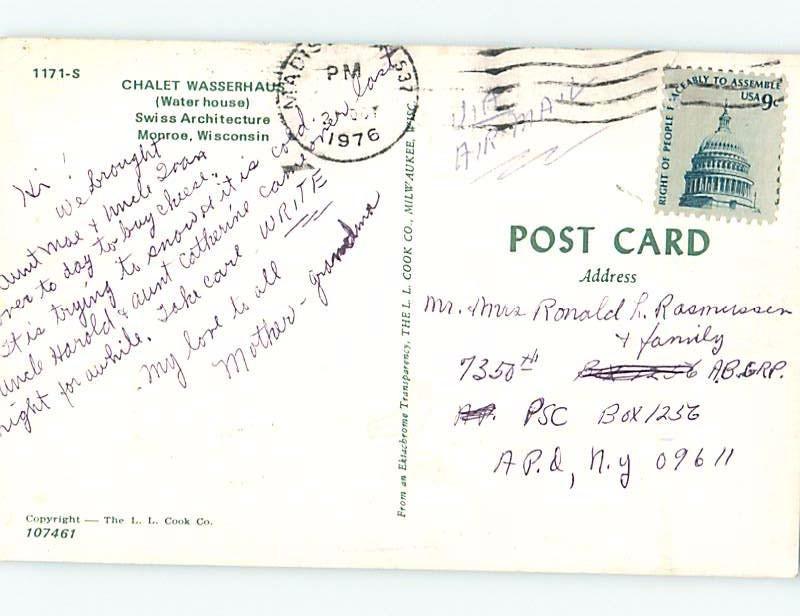 1171-S
CHALET WASSERHAUS
(Water house)
Swiss Architecture
Monroe, Wisconsin
Hi!
We brought
Aunt Mae & Uncle
over to day to buy cheese.
It is trying to snow & it is cold.
Uncle Harold & aunt Catherine came over last
night for awhile. Take care WRITE
My love to all
Mother - Grandma
Copyright — The L. L. Cook Co.
107461
From an Ektachrome Transparency, THE L. L. COOK CO., MILWAUKEE, WISC.
MADIS 537
PM
OCT
1976
VIA
AIR MAIL
RIGHT OF PEOPLE PEACEABLY TO ASSEMBLE
USA 9c
POST CARD
Address
Mr. Mrs Ronald L. Rasmussen
& family
7350th A.B.GRP.
PSC BOX 1256
A P.O, N.y 09611